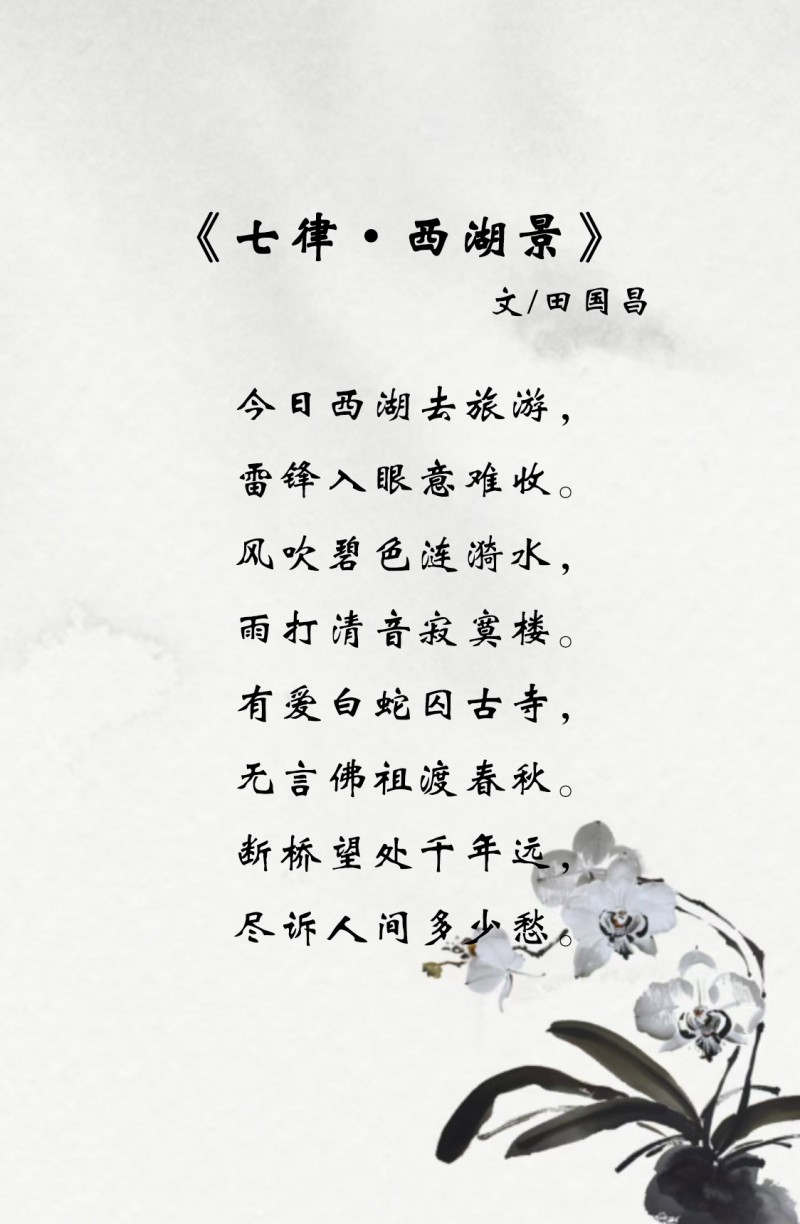 《七律·西湖景》
文/田国昌
今日西湖去旅游，
雷锋入眼意难收。
风吹碧色涟漪水，
雨打清音寂寞楼。
有爱白蛇囚古寺，
无言佛祖渡春秋。
断桥望处千年远，
尽诉人间多少愁。